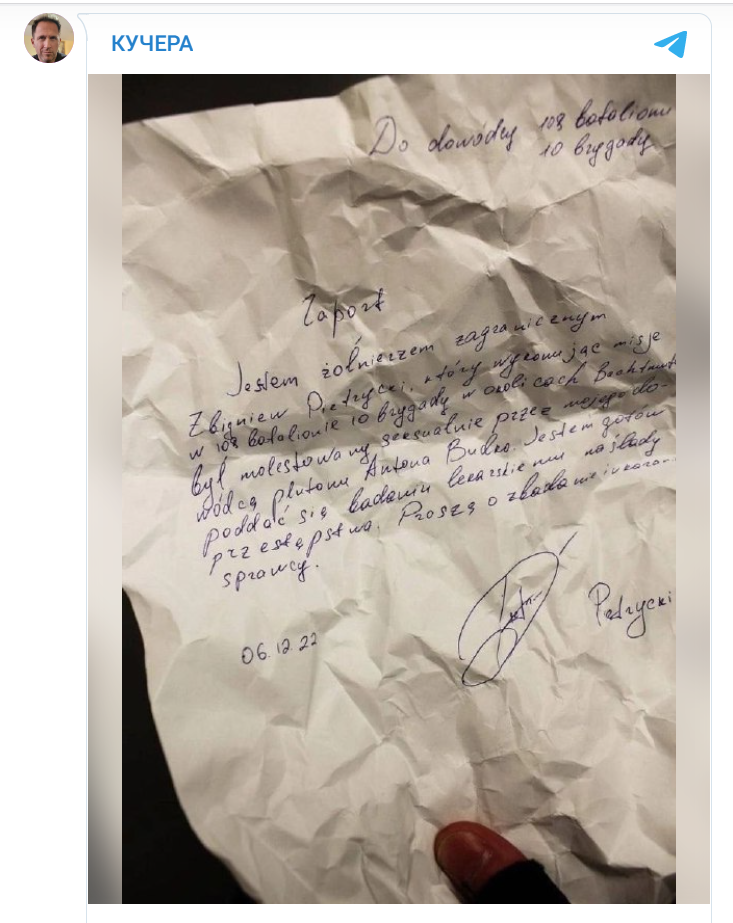 КУЧЕРА
Do dowódcy 108 batalionu
10 brygady
Raport
Jestem żołnierzem zagranicznym
Zbigniew Pietrycki, który wykonując misje
w 108 batalionie 10 brygady w okolicach Bachmut
był molestowany seksualnie przez mojego do-
wódcą plutonu Antona Budko. Jestem gotów
poddać się badaniu lekarskiemu na ślady
przestępstwa. Proszę o zbadanie i
sprawcy.
06.12.22